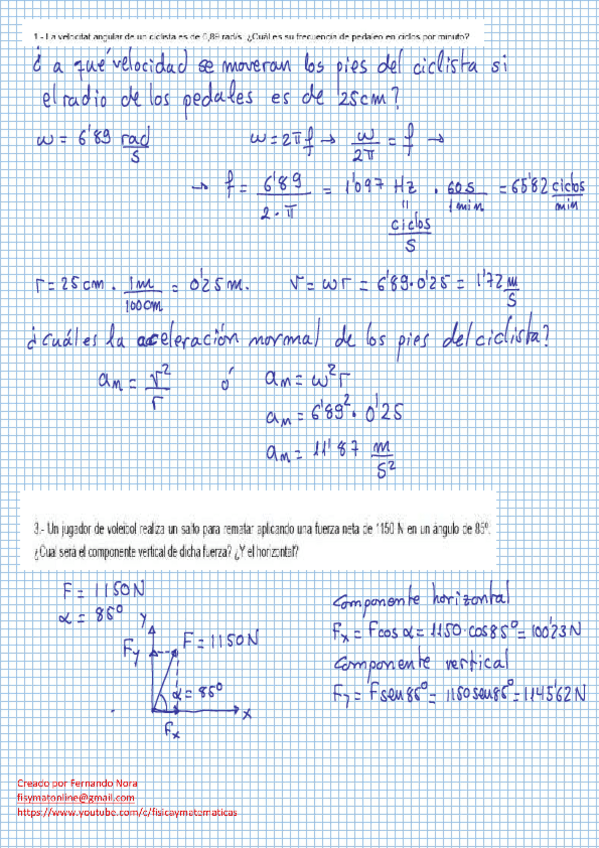 1.- La velocitat angular de un ciclista es de 6,89 rad/s. ¿Cuál es su frecuencia de pedaleo en ciclos por minuto?
¿ a qué velocidad se moveran los pies del ciclista si
el radio de los pedales es de 25cm?
ω = 6'89 rad/s ω = 2πf → ω/2π = f →
→ f = 6'89/2·π = 1'097 Hz · 60s/1min = 65'82 ciclos/min
=
ciclos/s
r = 25cm · 1m/100cm = 0'25m. v = ωr = 6'89·0'25 = 1'72 m/s
¿cuál es la aceleración normal de los pies del ciclista?
an = v²/r ó an = ω²r
an = 6'89² · 0'25
an = 11'87 m/s²
3.- Un jugador de voleibol realiza un salto para rematar aplicando una fuerza neta de 1150 N en un ángulo de 85º.
¿Cual será el componente vertical de dicha fuerza? ¿Y el horizontal?
F = 1150N
α = 85º
y
Fy
F = 1150N
α = 85º
x
Fx
Componente horizontal
Fx = F cos α = 1150·cos85º = 100'23N
Componente vertical
Fy = F sen 85º = 1150sen85º = 1145'62N
Creado por Fernando Nora
fisymatonline@gmail.com
https://www.youtube.com/c/fisicaymatematicas